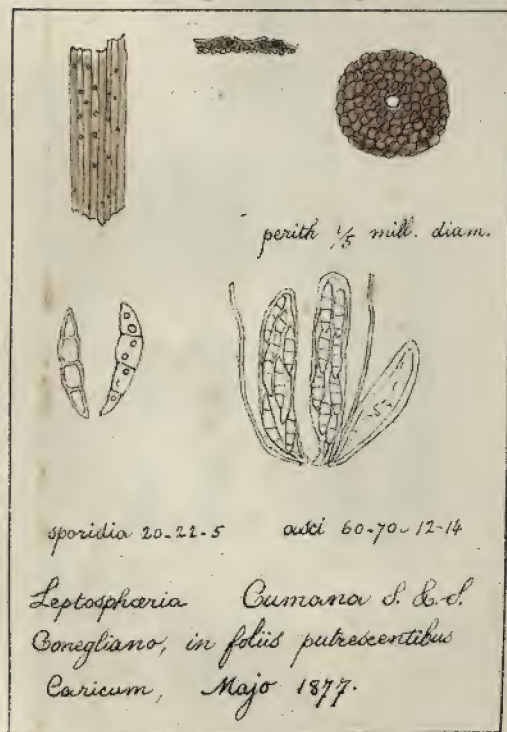 perith 1/5 mill. diam.
sporidia 20-22-5 asci 60-70-12-14
Leptosphæria Cumana S. & S.
Conegliano, in foliis putrescentibus
Caricum, Majo 1877.